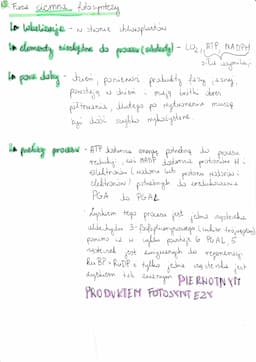 Faza ciemna fotosyntezy
→ lokalizacja - w stromie chloroplastów
→ elementy niezbędne do procesu (substraty) - CO2, ATP, NADPH
→ pora doby - dzień, ponieważ produkty fazy jasnej
powstają w dzień i mają krótki okres
półtrwania, dlatego po wytworzeniu muszą
być dość szybko wykorzystane.
→ przebieg procesu - ATP dostarcza energię potrzebną do procesu
redukcji, zaś NADP dostarcza protonów H i
elektronów (wodoru lub protonu wodoru i
elektronów) potrzebnych do zredukowania
PGA do PGAL
- Zyskiem tego procesu jest jedna cząsteczka
aldehydu 3-fosfoglicerynowego (cukier trójwęglowy)
pomimo iż w cyklu powstaje 6 PGAL, 5
cząsteczek jest zużywanych do regeneracji
RuBP - RuDP i tylko jedna cząsteczka jest
zyskiem tak zwanym PIERWOTNYM
PRODUKTEM FOTOSYNTEZY